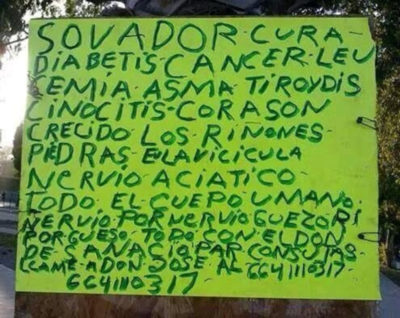 SOVADOR-CURA-
DIABETIS-CANCER-LEU
CEMIA-ASMA-TIROYDIS
CINOCITIS-CORASON
CRECIDO-LOS RIÑONES-
PIEDRAS ELAVICICULA
NERVIO ACIATICO-
TODO EL CUEPO UMANO.
NERVIO POR NERVIO GUEZO RI
POR GUESO-TODO CON EL DON
DE SANACIO PAR CONSUTAS-
LLAME ADON JOSE AL 6641110317-
6641110317-